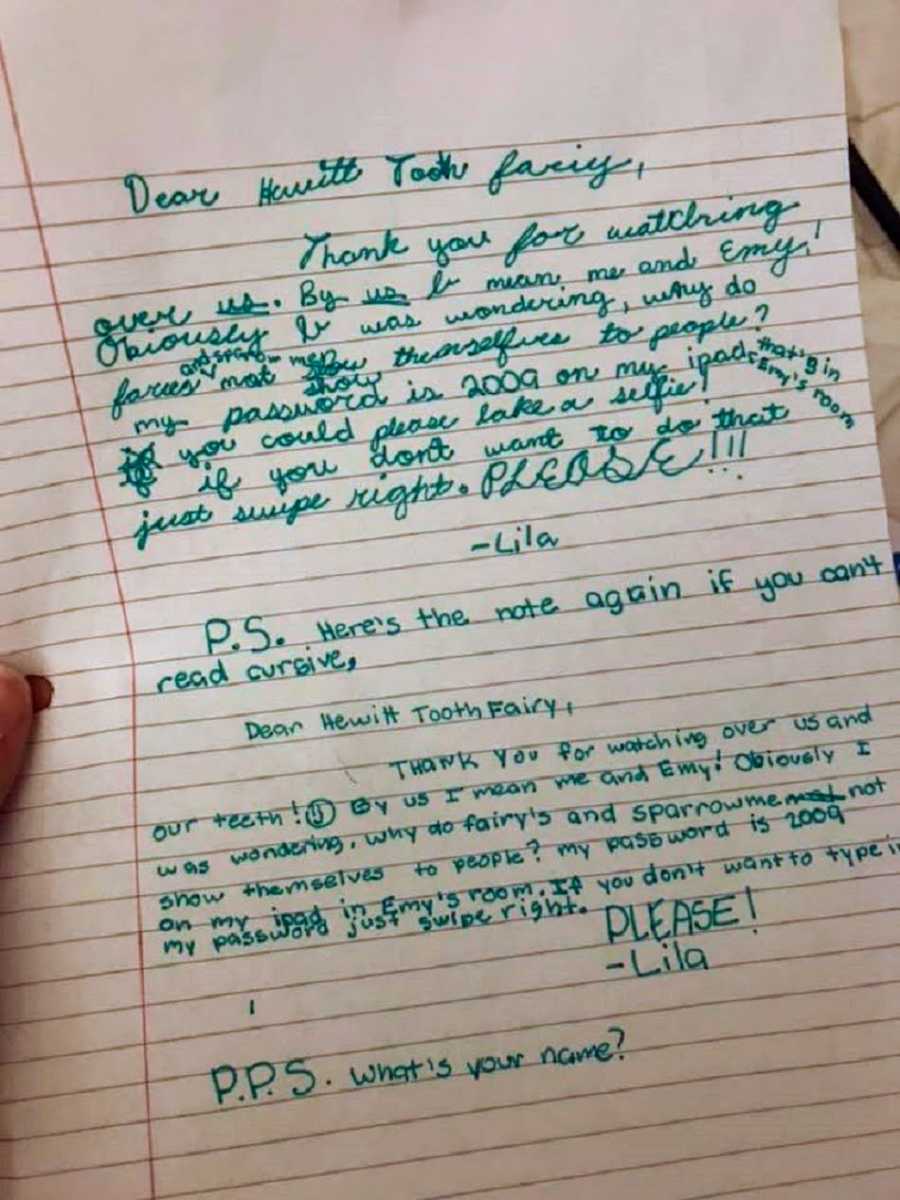 Dear Hewitt Tooth fariy,
Thank you for watchring
over us. By us I mean me and Emy!
Obiously I was wondering, why do
faries and sparrow men not show themselfves to people?
my password is 2009 on my ipad that's in Emy's room
you could please take a selfie!
if you dont want to do that
just swipe right. PLEASE!!!
-Lila
P.S. Here's the note again if you can't
read cursive,
Dear Hewitt Tooth Fairy,
Thank you for watching over us and
our teeth! By us I mean me and Emy! Obiously I
was wondering, why do fairy's and sparrowme not
show themselves to people? my password is 2009
on my ipad in Emy's room. If you don't want to type in
my password just swipe right. PLEASE!
-Lila
P.P.S. What's your name?